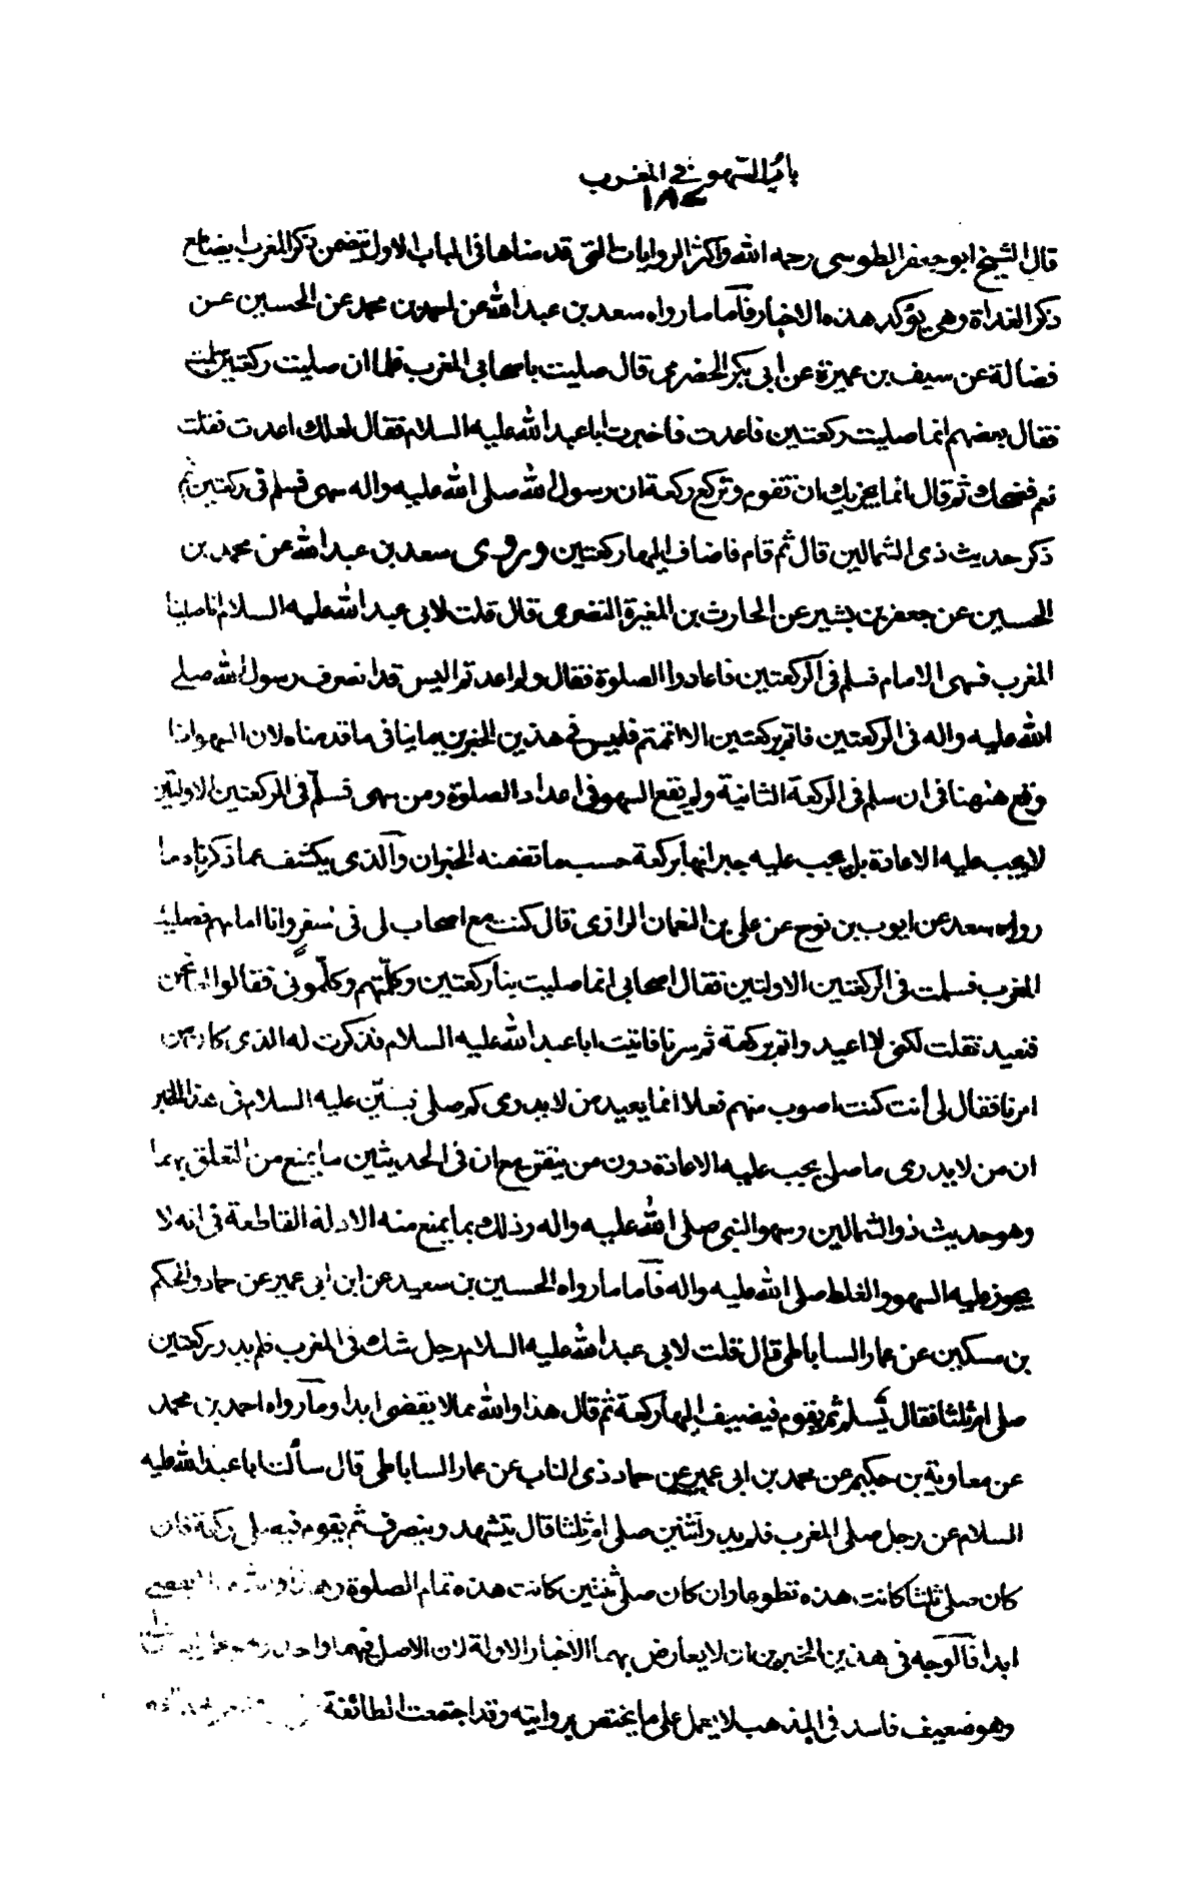 باب السهو في المغرب
١٨٤
قال الشيخ ابو جعفر الطوسي رحمه الله واكثر الروايات التي قدمناها في الباب الاول يتضمن ذكر المغرب ايضا مع
ذكر الغداة وهي يؤكد هذه الاخبار فآما ما رواه سعد بن عبد الله عن احمد بن محمد عن الحسين عن
فضالة عن سيف بن عميرة عن ابي بكر الحضرمي قال صليت باصحابي المغرب فلما ان صليت ركعتين سلمت
فقال بعضهم انما صليت ركعتين فاعدت فاخبرت ابا عبد الله عليه السلام فقال لعلك اعدت فقلت
نعم فضحك ثم قال انما يجزيك ان تقوم وتركع ركعة ان رسول الله صلى الله عليه واله سهى فسلم في ركعتين ثم
ذكر حديث ذي الشمالين قال ثم قام فاضاف اليها ركعتين وروى سعد بن عبد الله عن محمد بن
الحسين عن جعفر بن بشير عن الحارث بن المغيرة النضري قال قلت لابي عبد الله عليه السلام انا صلينا
المغرب فسهى الامام فسلم في الركعتين فاعادوا الصلوة فقال ولم اعدتم اليس قد انصرف رسول الله صلى
الله عليه واله في الركعتين فاتم بركعتين الا اتممتم فليس في هذين الخبرين ما ينافي ما قدمناه لان السهو اذا
وقع ههنا في ان سلم في الركعة الثانية ولم يقع السهو في اعداد الصلوة ومن سهى فسلّم في الركعتين الاولتين
لا يجب عليه الاعادة بل يجب عليه جبرانها بركعة حسب ما تضمنه الخبران والذي يكشف عما ذكرناه ما
رواه سعد عن ايوب بن نوح عن علي بن النعمان الرازي قال كنت مع اصحاب لي في سفر وانا امامهم فصليت
المغرب فسلمت في الركعتين الاولتين فقال اصحابي انما صليت بنا ركعتين وكلّمتهم وكلّموني فقالوا اما نحن
فنعيد فقلت لكني لا اعيد واتم بركعة ثم سرنا فاتيت ابا عبد الله عليه السلام فذكرت له الذي كان من
امرنا فقال لي أنت كنت اصوب منهم فعلا انما يعيد من لا يدري كم صلى فبيّن عليه السلام في هذا الخبر
ان من لا يدري ما صلى يجب عليه الاعادة دون من يتقن مع ان في الحديثين ما يمنع من التعلق بهما
وهو حديث ذو الشمالين وسهو النبي صلى الله عليه واله وذلك مما يمنع منه الادلة القاطعة في انه لا
يجوز عليه السهو والغلط صلى الله عليه واله فآما ما رواه الحسين بن سعيد عن ابن ابي عمير عن حماد والحكم
بن مسكين عن عمار الساباطي قال قلت لابي عبد الله عليه السلام رجل شك في المغرب فلم يدر ركعتين
صلى ام ثلثا فقال يُسلم ثم يقوم فيضيف اليها ركعة ثم قال هذا والله مما لا يقضى ابدا ومآ رواه احمد بن محمد
عن معاوية بن حكيم عن محمد بن ابي عمير عن حماد ذي الناب عن عمار الساباطي قال سألت ابا عبد الله عليه
السلام عن رجل صلى المغرب فلم يدر اثنين صلى ام ثلثا قال يتشهد وينصرف ثم يقوم فيصلي ركعة فان
كان صلى ثلثا كانت هذه تطوعا وان كان صلى ثنتين كانت هذه تمام الصلوة
ابدا فآلوجه في هذين الخبرين ان لا يعارض بهما الاخبار الاولة لان الاصل فيهما واحد
وهو ضعيف فاسد في المذهب لا يعمل على ما يختص بروايته وقد اجتمعت الطائفة